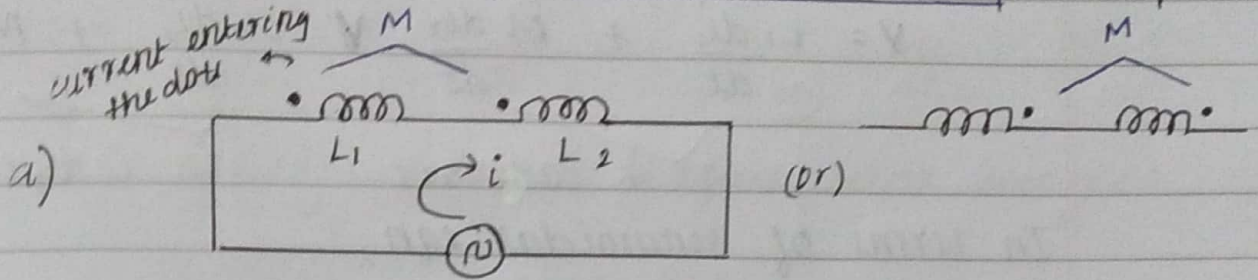 current entering
the dots
M
M
L1
L2
a)
i
(or)